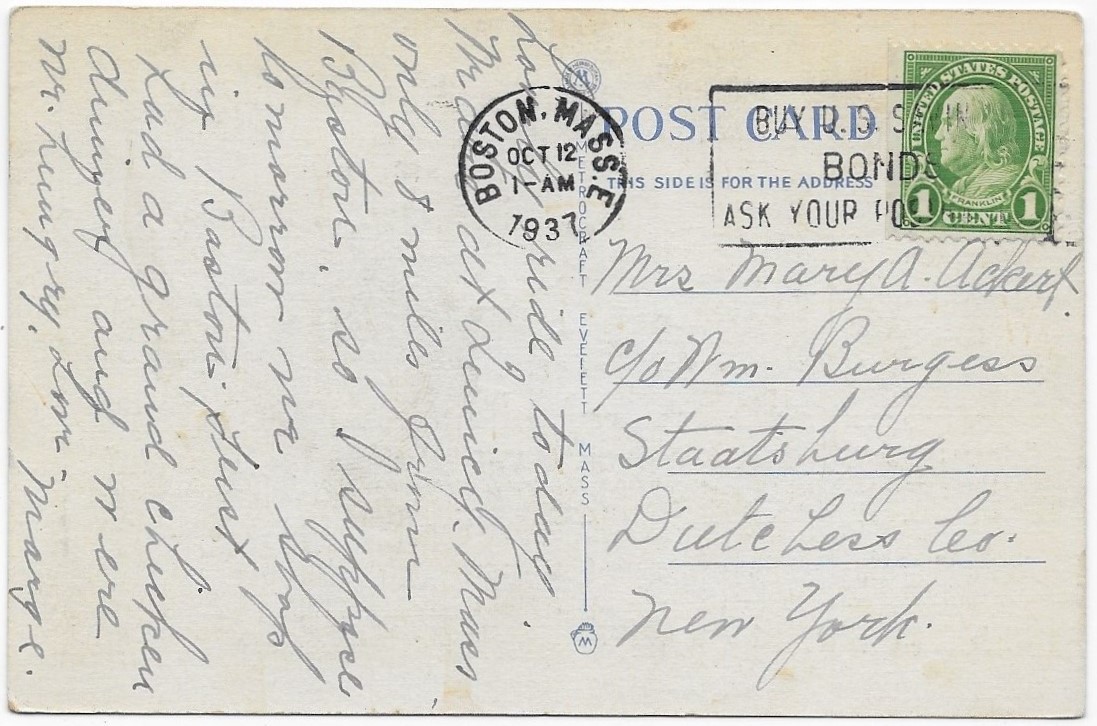 ride today.
We are at Quincy. Mass
only 8 miles from
Boston. so I suppose
to morrow we stop
in Boston, just
had a grand chicken
dinner and were
hungry, Love Marge.
POST CARD
THIS SIDE IS FOR THE ADDRESS
BOSTON, MASS.
OCT 12
1-AM
1937
BUY U.S.
BONDS
ASK YOUR
UNITED STATES POSTAGE
FRANKLIN
1 CENT 1
METROCRAFT EVERETT MASS
M
Mrs Mary A. Ackert.
c/o Wm. Burgess
Staatsburg
Dutchess Co.
New York.